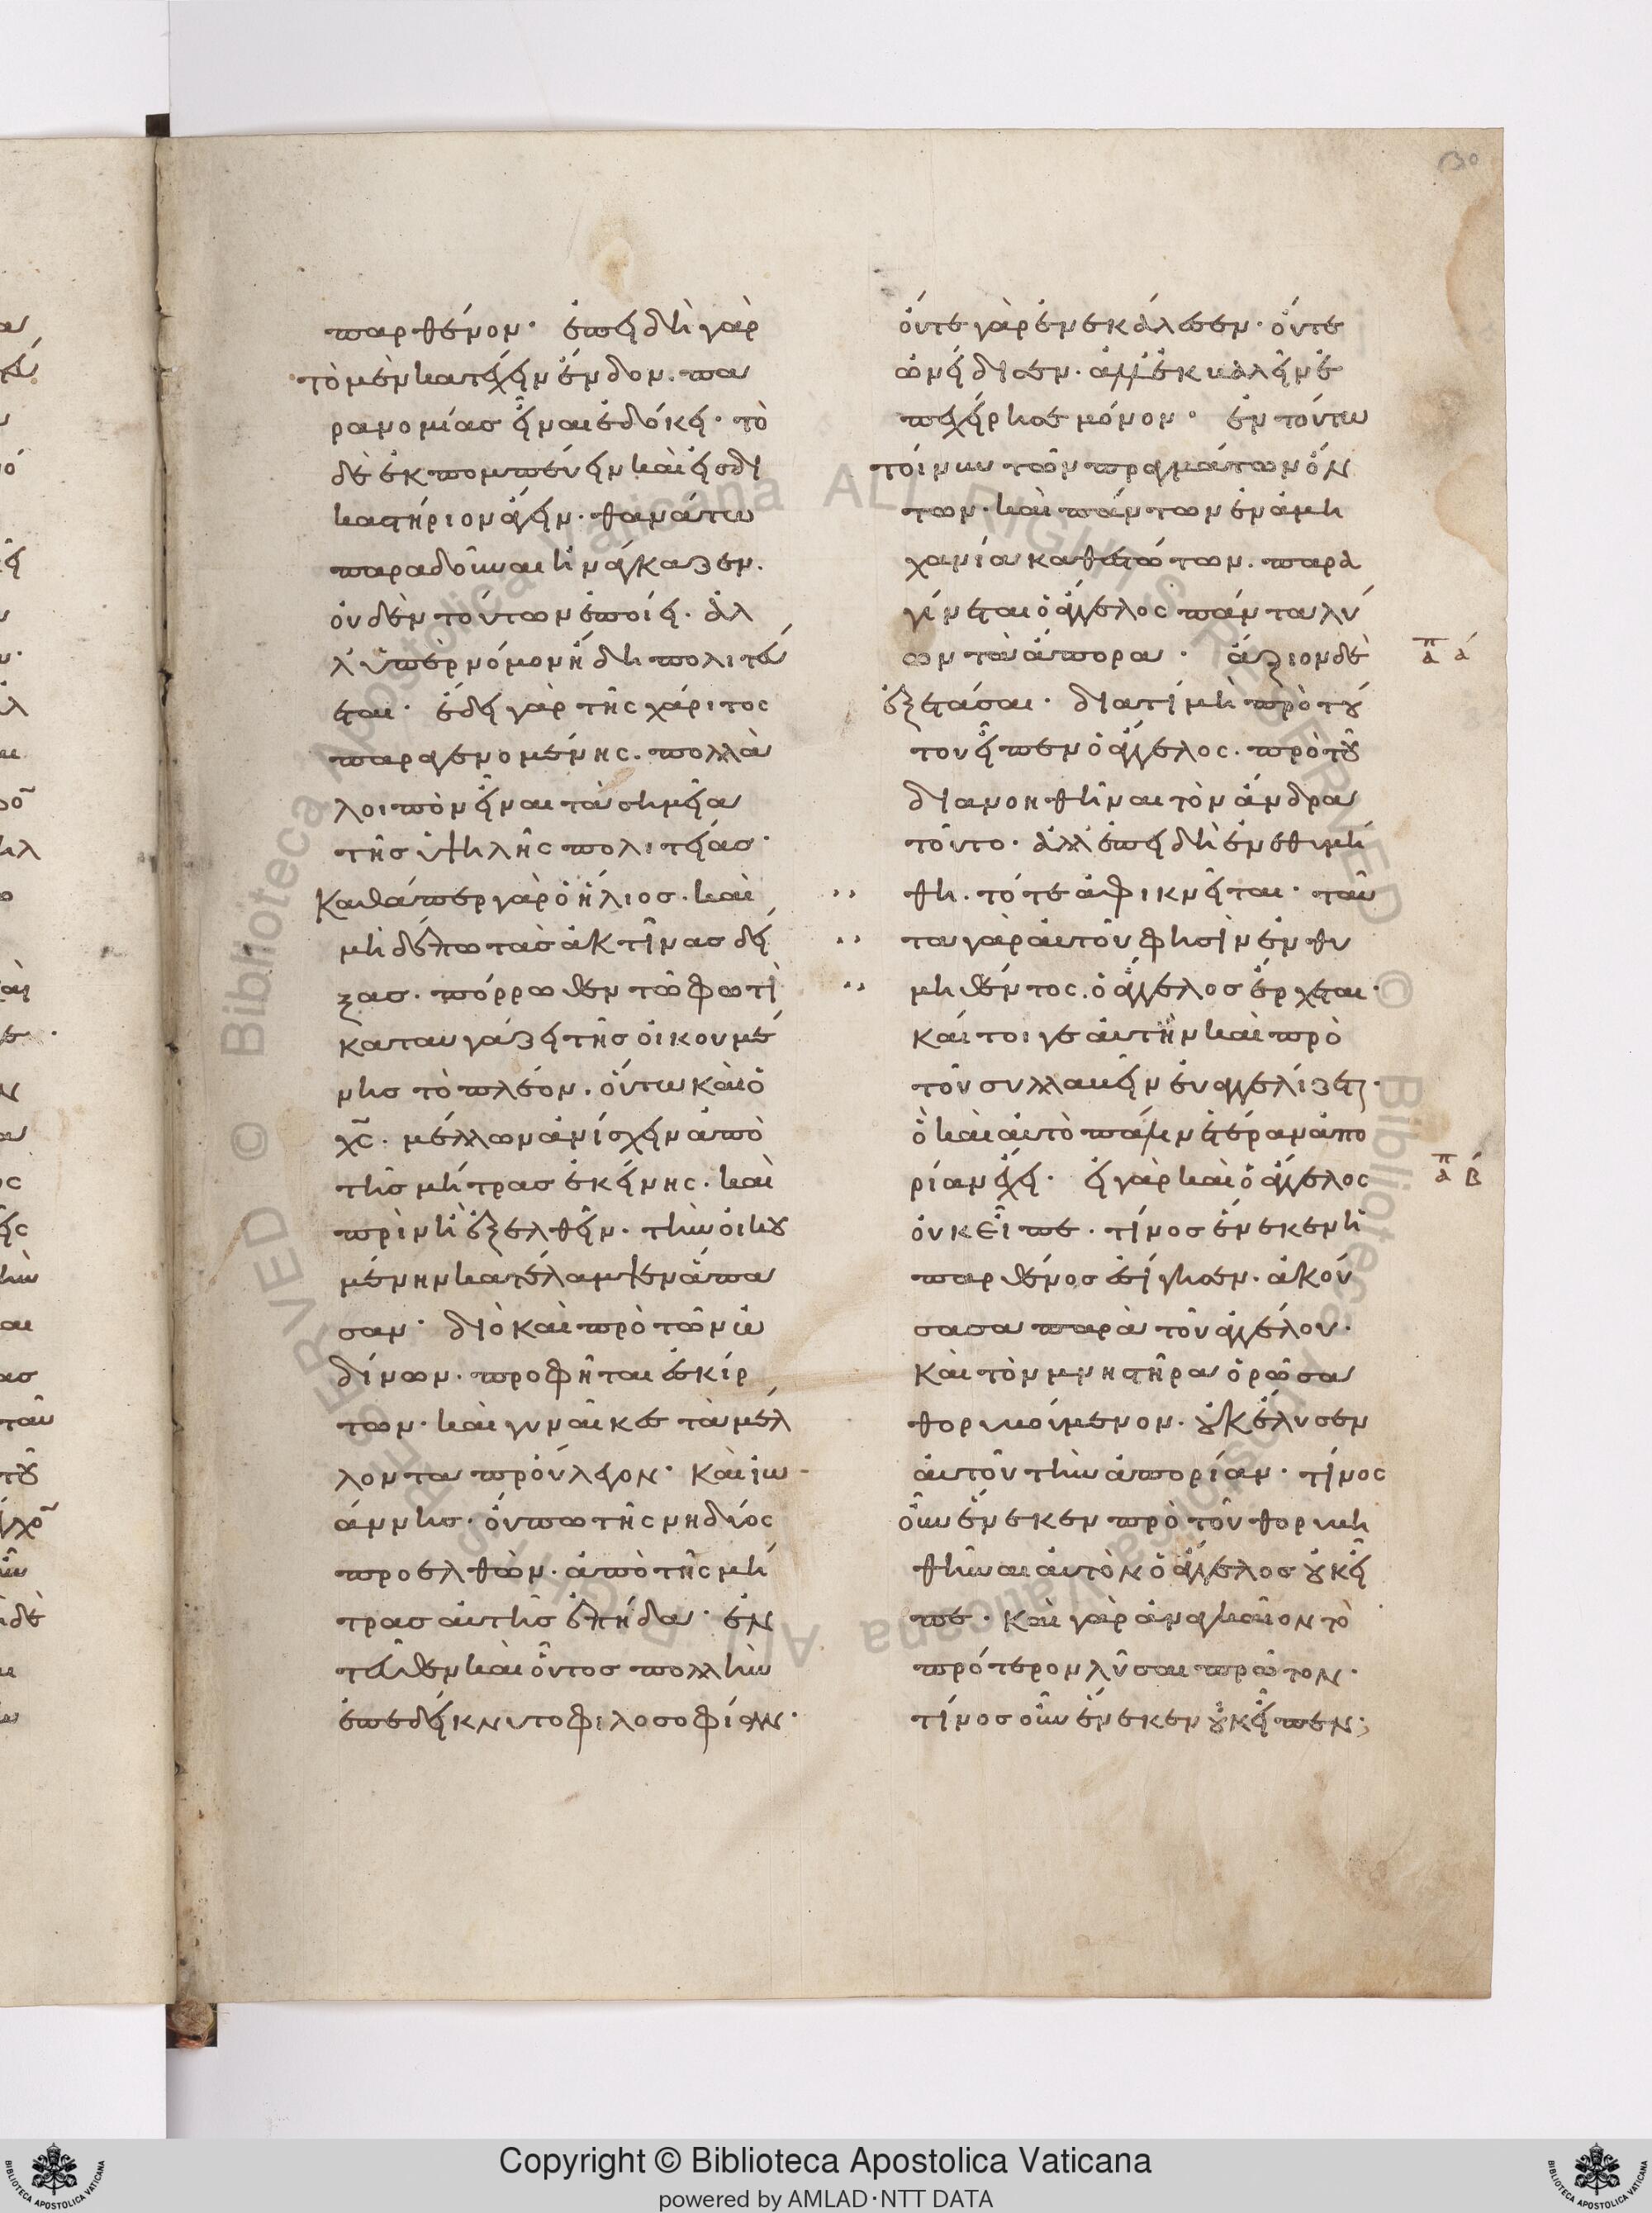 παρθένον· ἐπειδὴ γὰρ
τὸ μὲν κατέχειν ἔνδον. πα
ρανομίας εἶναι ἐδόκει· τὸ
δὲ ἐκπομπεύειν καὶ εἰς δι
καστήριον ἄγειν. θανάτω
παραδοῦναι ἠνάγκαζεν.
οὐδὲν τούτων ἐποίει. ἀλ
λ' ὑπὲρ νόμον ἤδη πολιτεύ
εται· ἔδει γὰρ τῆς χάριτος
παραγενομένης. πολλὰ
λοιπὸν εἶναι τὰ σημεῖα
τῆς ὑψηλῆς πολιτείας·
Καθάπερ γὰρ ὁ ἥλιος. καὶ
μηδέπω τὰς ἀκτῖνας δεί
ξας. πόρρωθεν τῶ φωτὶ
καταυγάζει τῆς οἰκουμέ
νης τὸ πλέον. οὕτω καὶ ὁ
χς. μέλλων ἀνίσχειν ἀπὸ
τῆς μήτρας ἐκείνης. καὶ
πρὶν ἢ ἐξελθεῖν. τὴν οἰκου
μένην κατέλαμψεν ἅπα
σαν· διὸ καὶ πρὸ τῶν ὠ
δίνων. προφῆται ἐσκίρ
των. καὶ γυναῖκες τὰ μέλ
λοντα προύλεγον· καὶ ἰω
άννης. οὔπω τῆς νηδύος
προελθὼν. ἀπὸ τῆς μή
τρας αὐτῆς ἐπήδα· ἐν
τεῦθεν καὶ οὗτος πολλὴν
ἐπεδείκνυτο φιλοσοφίαν·
οὔτε γὰρ ἐνεκάλεσεν. οὔτε
ὠνείδισεν. ἀλλ' ἐκβαλεῖν ἐ
πεχείρησε μόνον· ἐν τούτω
τοίνυν τῶν πραγμάτων ὄν
των. καὶ πάντων ἐν ἀμη
χανία καθεστώτων. παρα
γίνεται ὁ ἄγγελος πάντα λύ
ων τὰ ἄπορα· ἄξιον δὲ
ἐξετάσαι· διατί μὴ πρὸ τού
του εἶπεν ὁ ἄγγελος. πρὸ τοῦ
διανοηθῆναι τὸν ἄνδρα
τοῦτο. ἀλλ' ἐπειδὴ ἐνεθυμή
θη. τότε ἀφικνεῖται· ταῦ
τα γὰρ αὐτοῦ φησὶν ἐνθυ
μηθέντος. ὁ ἄγγελος ἔρχεται·
καίτοιγε αὐτὴν καὶ πρὸ
τοῦ συλλαβεῖν εὐαγγελίζεται.
ὃ καὶ αὐτὸ πάλιν ἑτέραν ἀπο
ρίαν ἔχει· εἰ γὰρ καὶ ὁ ἄγγελος
οὐκ εἶπε. τίνος ἕνεκεν ἡ
παρθένος ἐσίγησεν. ἀκού
σασα παρὰ τοῦ ἀγγέλου.
καὶ τὸν μνηστῆρα ὁρῶσα
θορυβούμενον. οὐκ ἔλυσεν
αὐτοῦ τὴν ἀπορίαν. τίνος
οὖν ἕνεκεν πρὸ τοῦ θορυβη
θῆναι αὐτὸν ὁ ἄγγελος οὐκ εἶ
πε. καὶ γὰρ ἀναγκαῖον τὸ
πρότερον λῦσαι πρῶτον.
τίνος οὖν ἕνεκεν οὐκ εἶπεν;
απ α
απ β
Copyright © Biblioteca Apostolica Vaticana
powered by AMLAD·NTT DATA